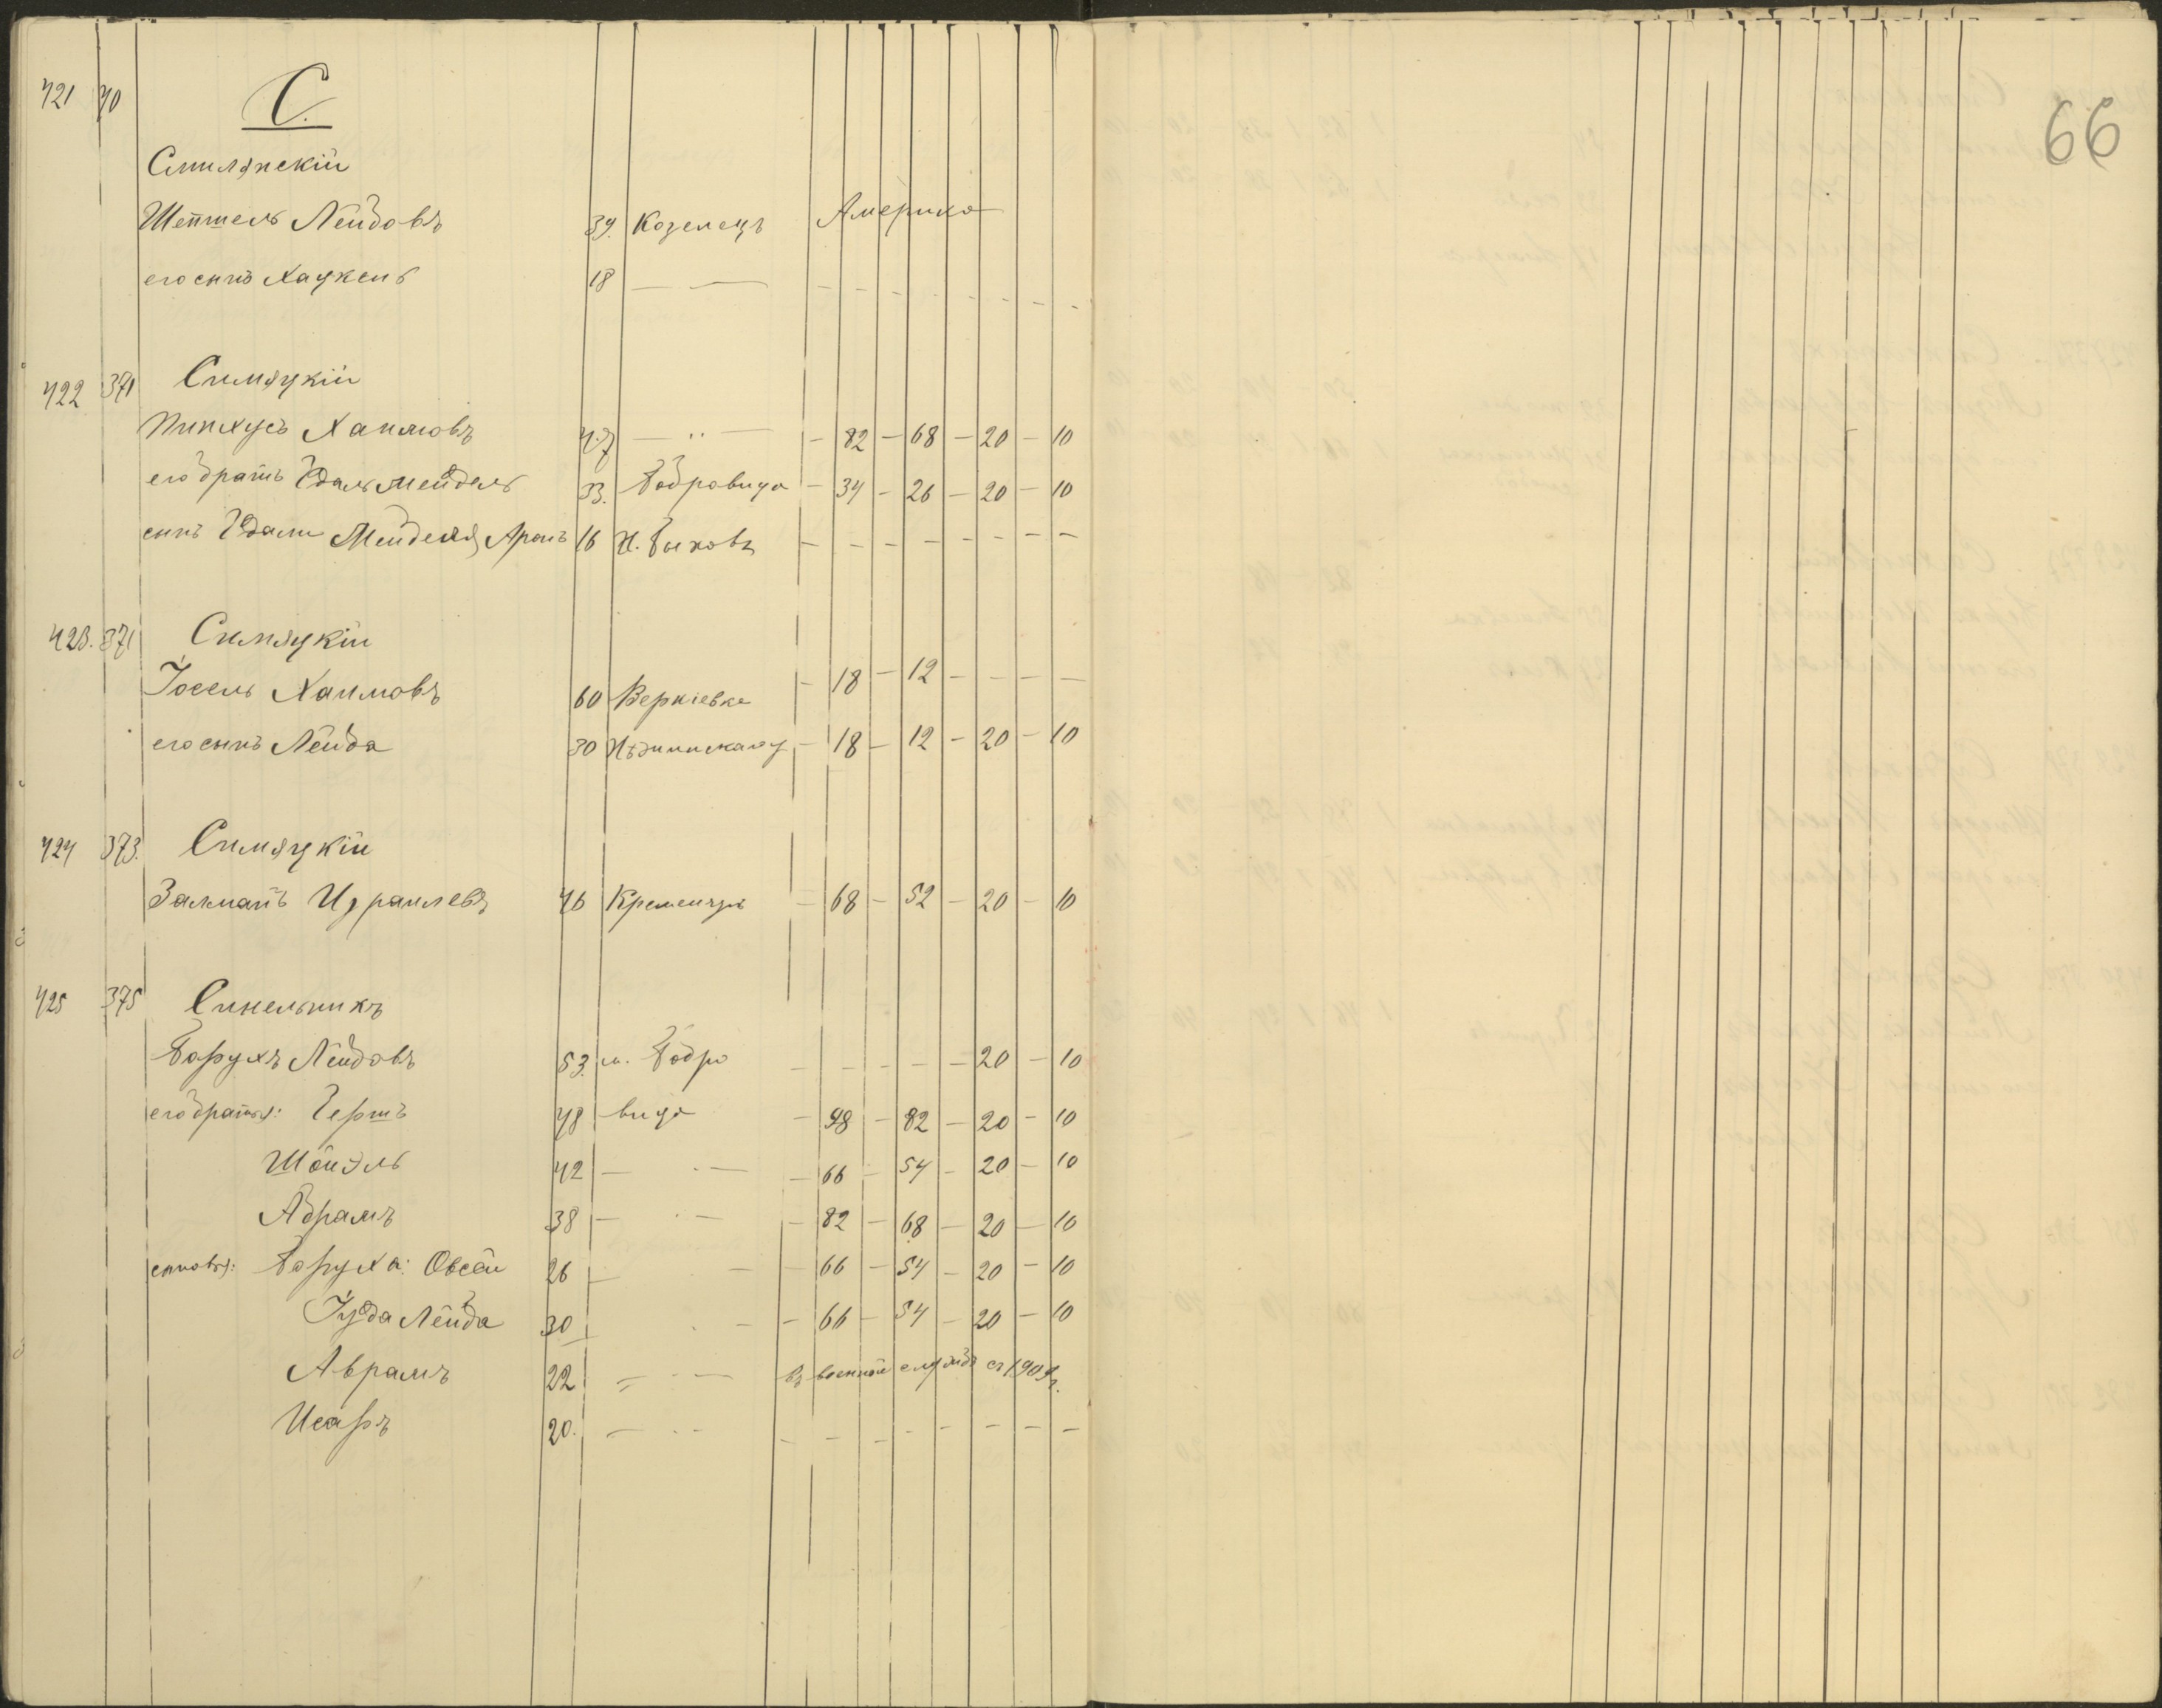 421 70 С.
Смилянскiй
Шепшель Лейбовъ 39. Козелецъ Америка
его сынъ Хацкель 18 — — - - - - - - - -
422 371 Симяцкiй
Пинхусъ Хаимовъ 47 — " — - 82 - 68 - 20 - 10
его братъ Гдаль Мендель 33. Бобровица - 34 - 26 - 20 - 10
сынъ Гдали Менделя Аронъ 16 Н. Быковъ - - - - - - - -
423. 371 Симяцкiй
Iосель Хаимовъ 60 Веркiевка - 18 - 12 - - - -
его сынъ Лейба 30 - 18 - 12 - 20 - 10
424 373. Симяцкiй
Залманъ Израилевъ 46 Кременчугъ - 68 - 52 - 20 - 10
425 375 Синельникъ
Борухъ Лейбовъ 53. м. Бобро - - - - - 20 - 10
его братья: Гершъ 48 вица - 98 - 82 - 20 - 10
Шойэль 42 — · — - 66 - 54 - 20 - 10
Абрамъ 38 — · — - 82 - 68 - 20 - 10
сыновья: Боруха: Овсей 26 — — - 66 - 54 - 20 - 10
Iуда Лейба 30 — · — - 66 - 54 - 20 - 10
Аврамъ 22 — · — въ военной службѣ съ 1909 г.
Исаръ 20. — · - - - - - - - - -
66